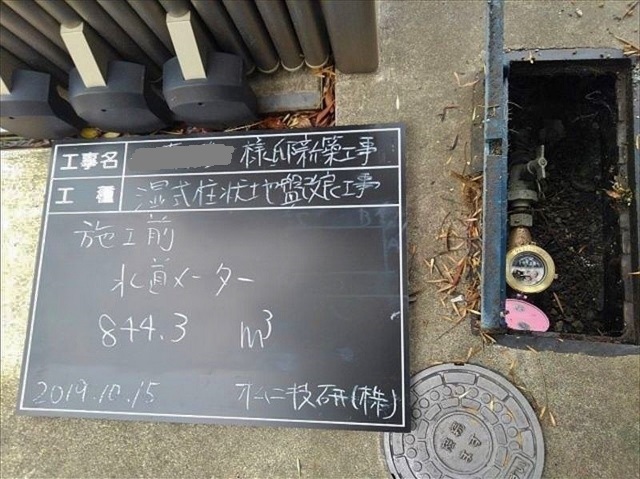 工事名 様邸新築工事
工種 湿式柱状地盤改良工事
施工前
水道メーター
844.3 m³
2019.10.15 オムニ技研(株)